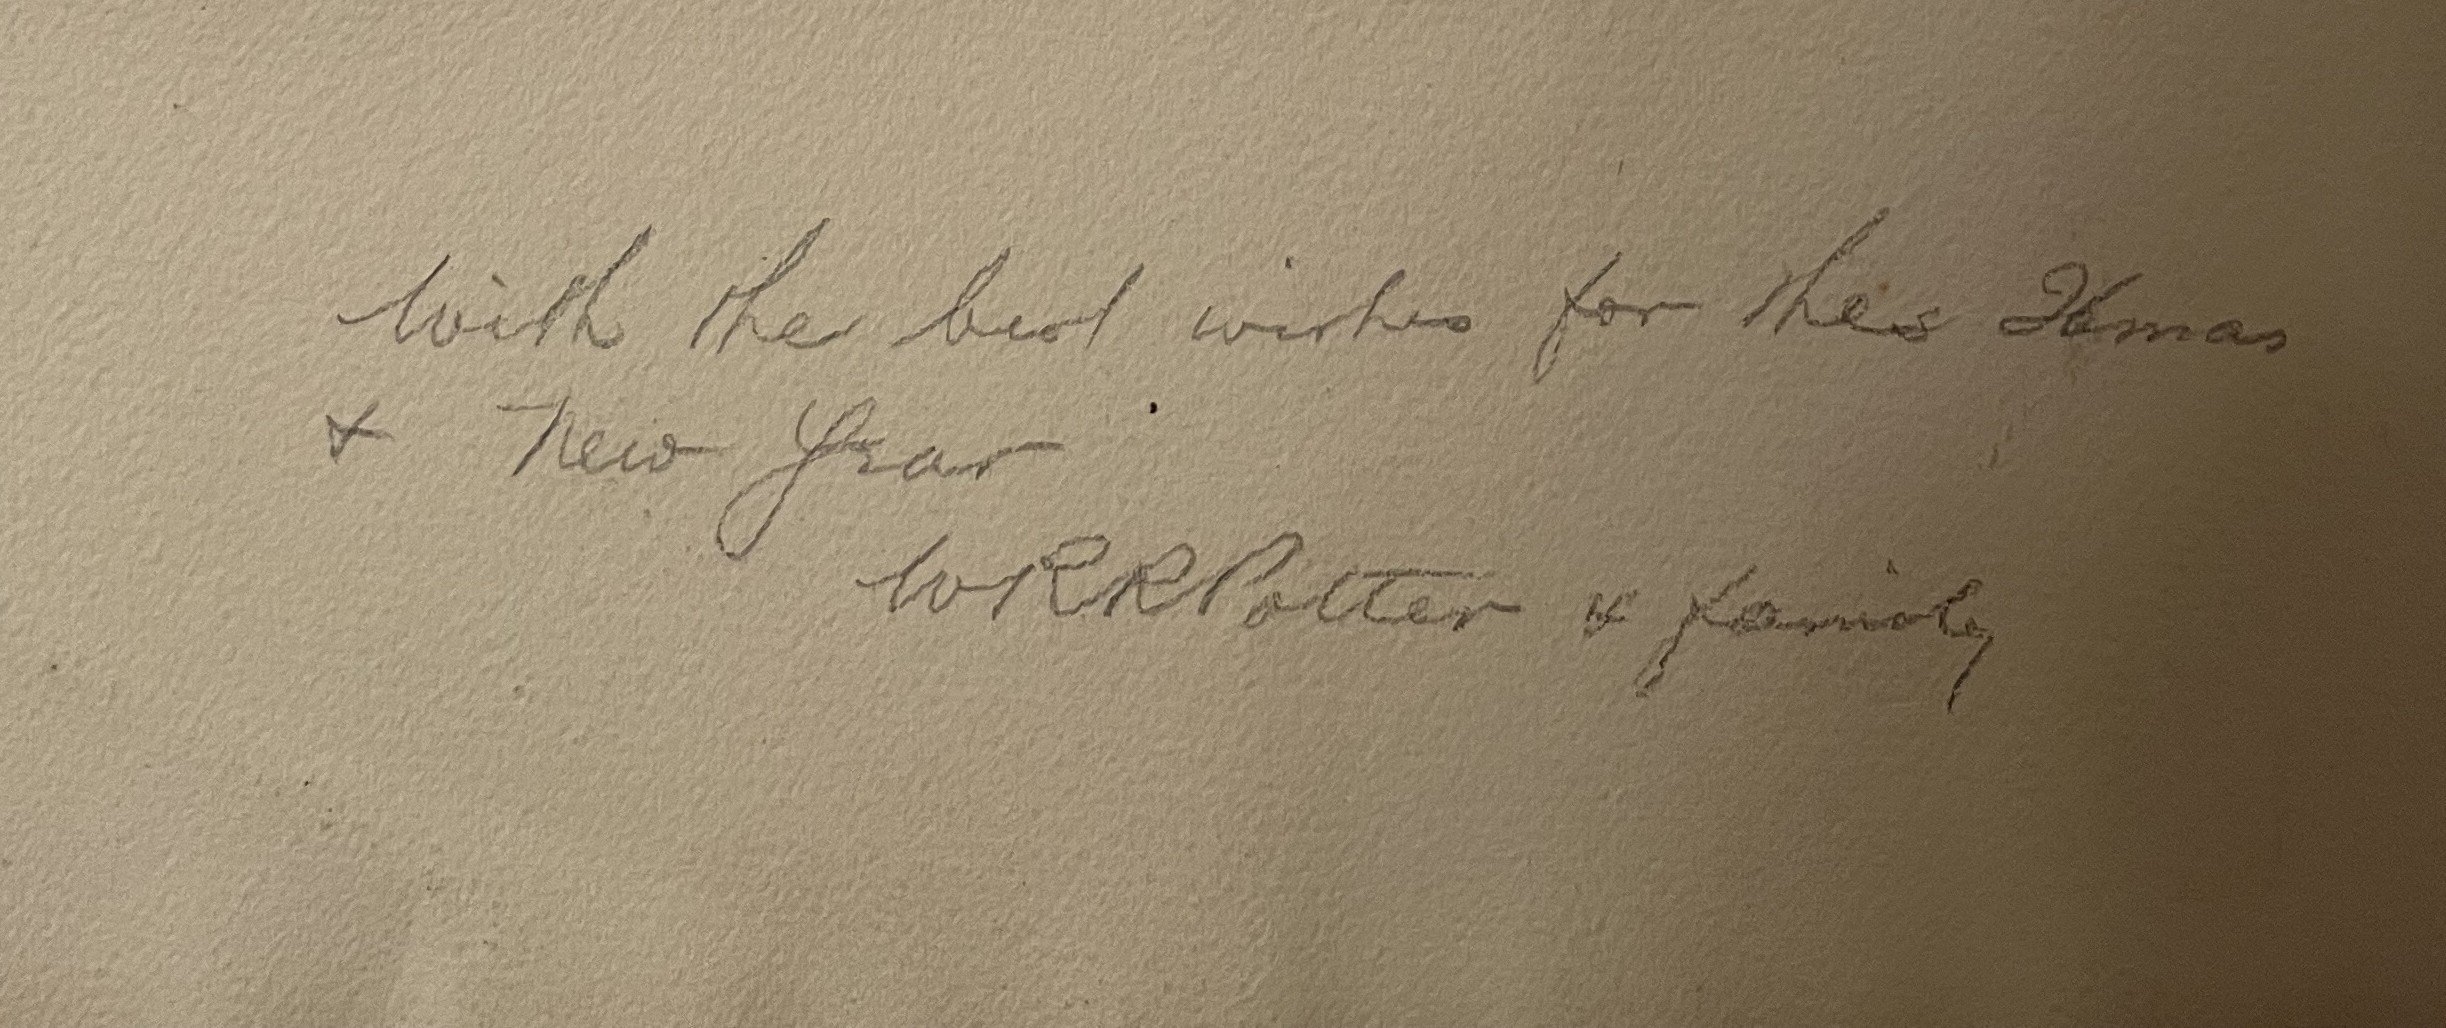 With the best wishes for thes Xmas
& New Year
W R R Potter & family